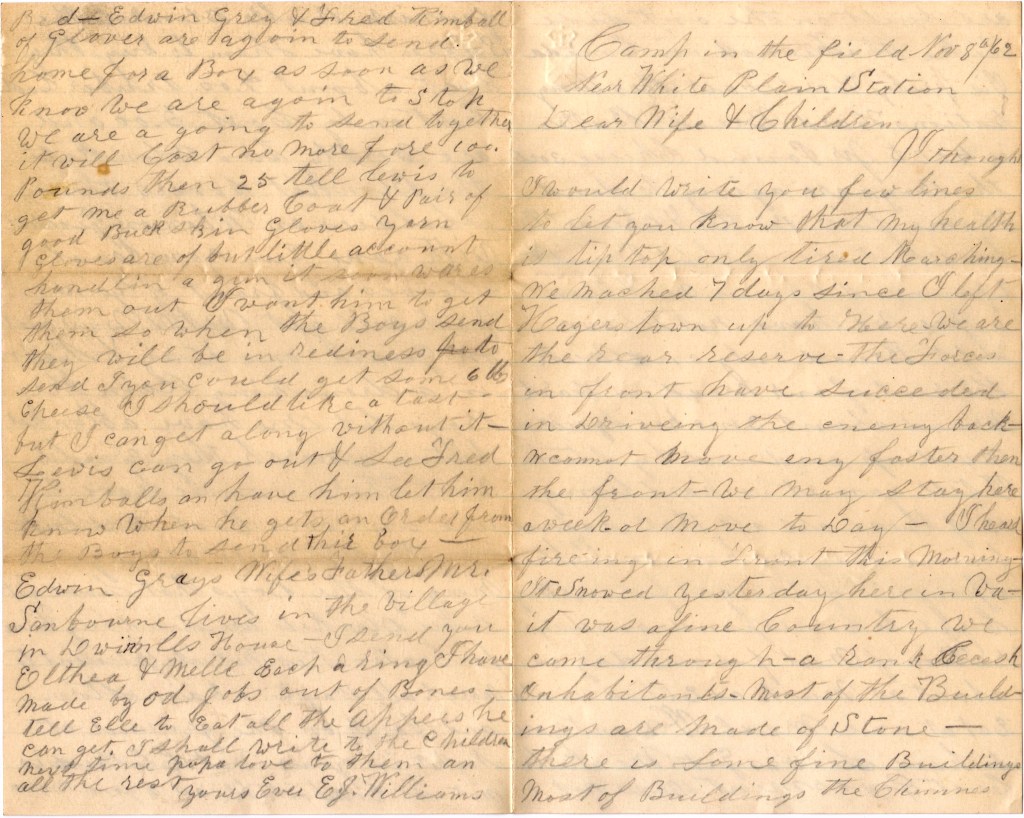 Camp in the field Nov 8th/62
Near White Plain Station
Dear Wife & Children
I though
I would write you few lines
to let you know that my health
is tip top only tired Marching-
We mached 7 days since I left
Hagerstown up to Here we are
the rear reserve - the Forces
in front have succeded
in Driveing the enemy back-
we cannot move eny faster then
the front - We may stay here
a week or move to Day - I heard
fireing in Front this Morning-
It Snowed yesterday here in Va-
it was a fine Country we
came through - a rank Secesh
inhabitants - Most of the Build-
ings are Made of Stone -
there is Some fine Buildings
Most of Buildings the Chimnes
Edwin Grey & Fred Kimball
of Glover are agoin to send
home for a Box as soon as we
know we are again to Stop
We are a going to send together
it will Cost no more fore 100.
Pounds then 25 tell lewis to
get me a Rubber Coat & Pair of
good Buck skin Gloves yarn
Gloves are of but little account
handlin a gun it soon wares
them out I want him to get
them so when the Boys send
they will be in rediness fro to
send I you could get some 6 lb
Cheese I should like a tast
but I can get along without it -
Lewis can go out & See Fred
Kimballs an have him let him
know when he gets an Order from
the Boys to send thir Box -
Edwin Grays Wifes Fathers Mr.
Sanbourne lives in the Village
in Dwinells House - I send you
Elthea & Melle Each a ring I have
Made by od Jobs out of Bones -
tell Elle to Eat all the Appers he
can get. I shall write to the Children
next time papa love to them an
all the rest yours Ever E.J. Williams